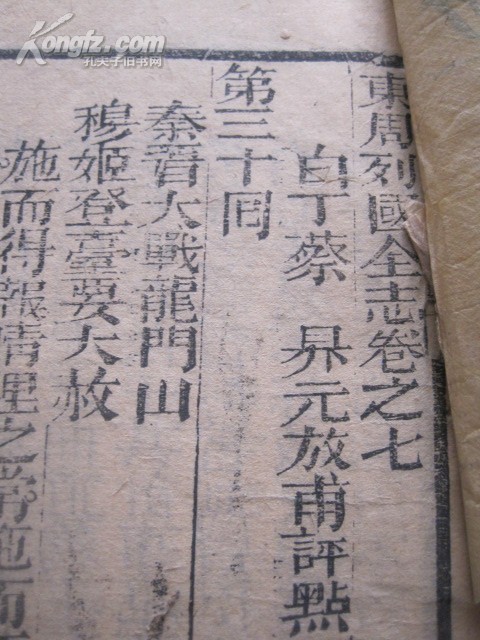 Kongfz.com
孔夫子旧书网
東周列國全志卷之七
白丁蔡 昇元放甫評點
第三十囘
秦晉大戰龍門山
穆姬登臺要大赦
施而得報情理之常施而